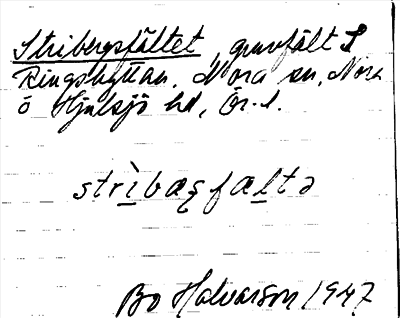 Stribergsfältet, gruvfält S
Ringshyttan. Nora sn, Nora
o Hjulsjö hd, Ör. l.
strìbæ̨fæltə
Bo Halvarson 1947